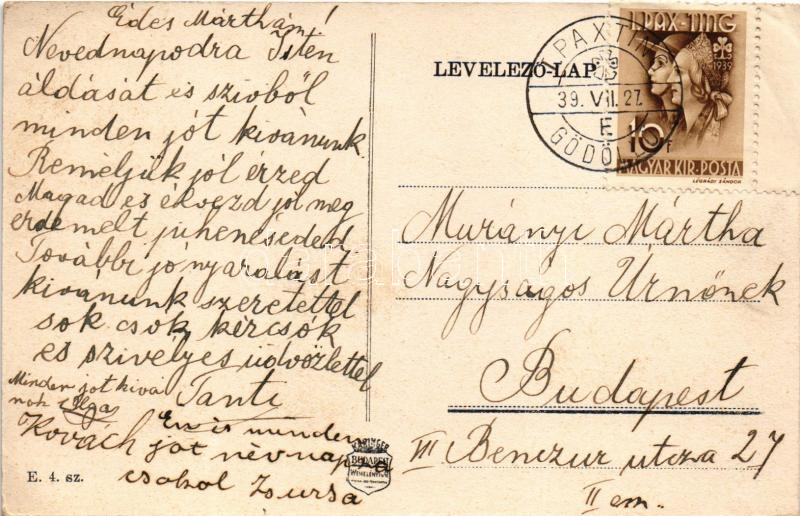 Édes Márthám!
Nevednapodra Isten
áldását és szivből
minden jót kivánunk.
Reméljük jól érzed
Magad es élvezd jól meg
érdemelt pihenésedet.
További jó nyaralást
kivánunk szeretettel
sok csok kézcsók
es szivélyes üdvözlettel
Tanti
Minden jot kiva
nok Olga
Kovách
En is minden
jot névnapra
csokol Zsurza
E. 4. sz.
KARINGER
BUDAPEST
LEVELEZŐ-LAP
PAX TING
39. VII. 27.
E
GÖDÖLLŐ
I. PAX-TING
1939
10 f
MAGYAR KIR. POSTA
LÉGRÁDI SÁNDOR
Murányi Mártha
Nagyságos Úrnőnek
Budapest
VII Benczur utcza 27
II em.